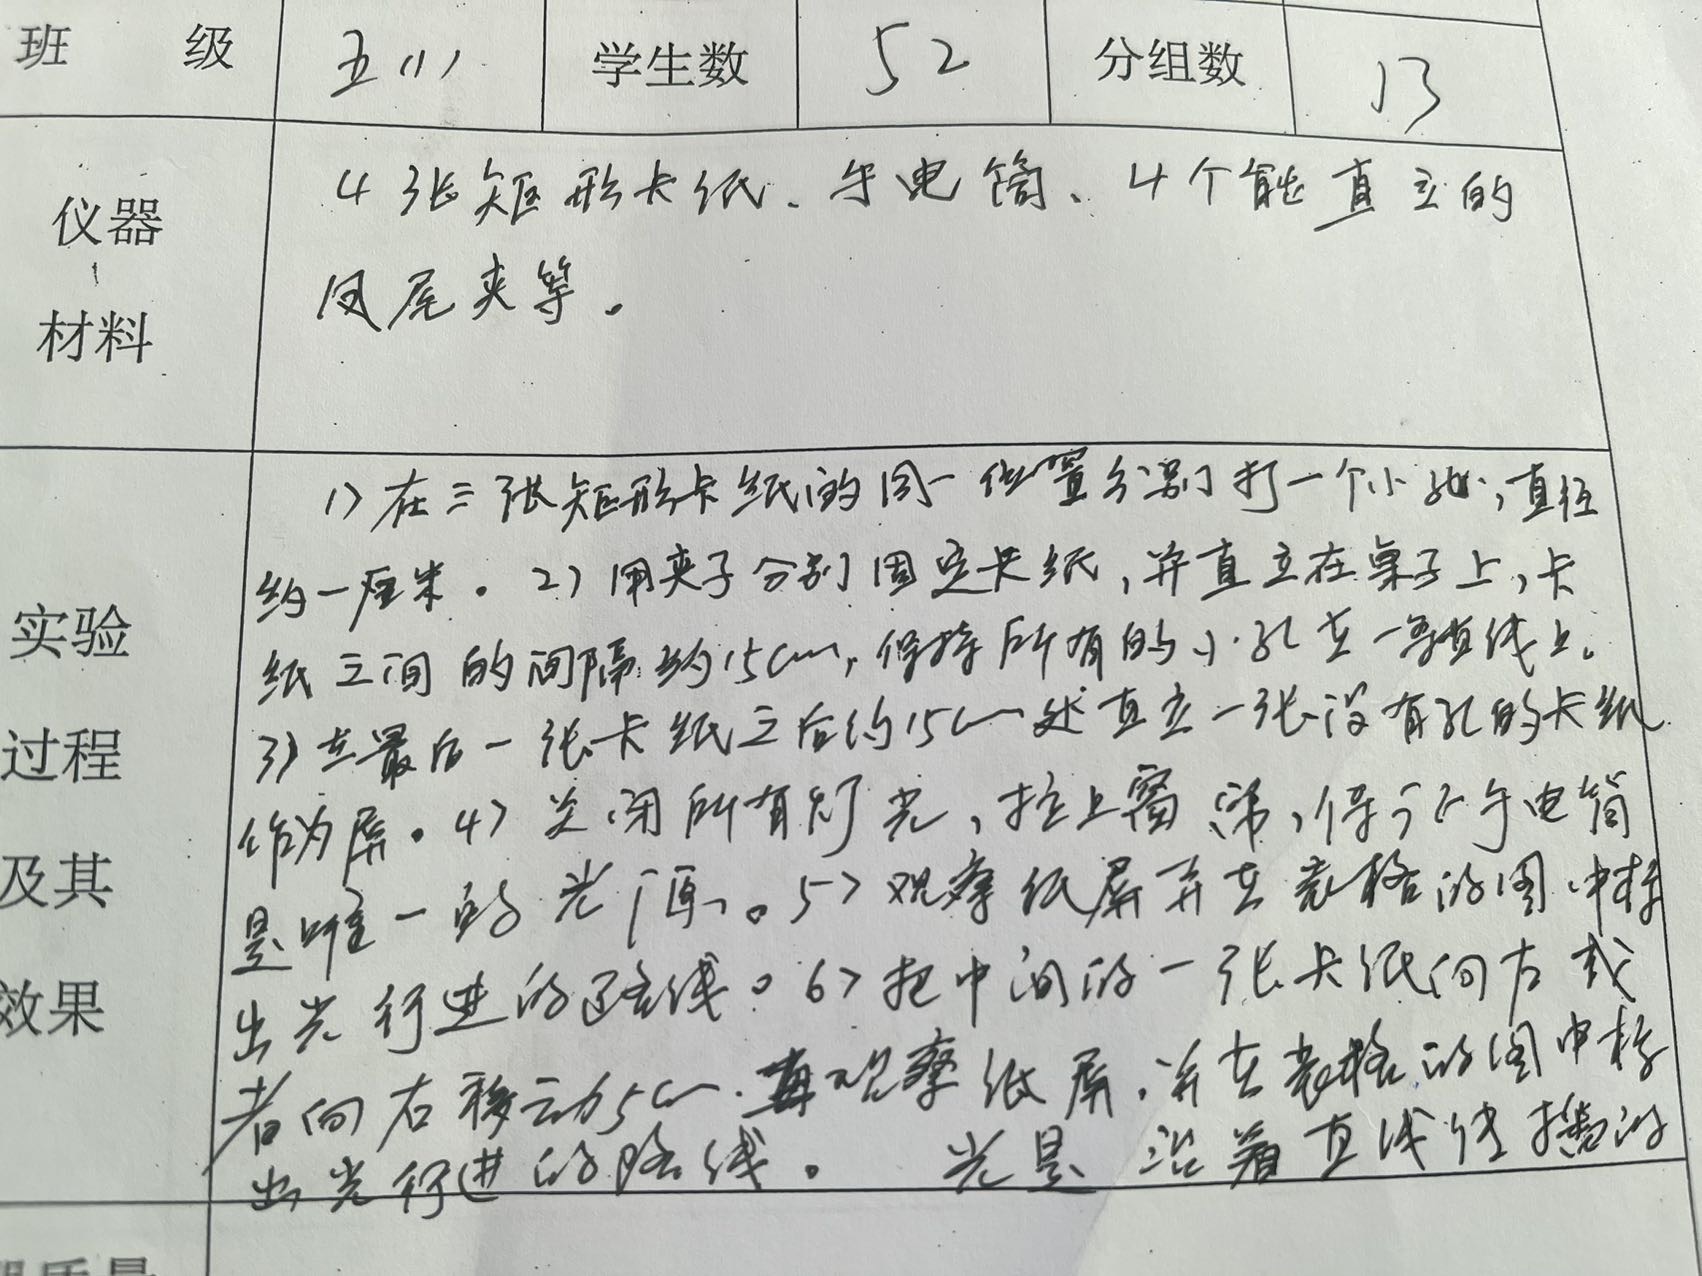 班 级 五(1) 学生数 52 分组数 13
仪器
材料
4张矩形卡纸、手电筒、4个能直立的
凤尾夹等。
实验
过程
及其
效果
1)在三张矩形卡纸的同一位置分别打一个小孔,直径
约一厘米。2)用夹子分别固定卡纸,并直立在桌子上,卡
纸之间的间隔约15cm,保持所有的小孔在一条直线上。
3)在最后一张卡纸之后约15cm处直立一张没有孔的卡纸
作为屏。4)关闭所有灯光,拉上窗帘,保手电筒
是唯一的光源。5)观察纸屏并在表格的图中标
出光行进的路线。6)把中间的一张卡纸向左或
者向右移动5cm.再观察纸屏,并在表格的图中标
出光行进的路线。 光是沿着直线传播的